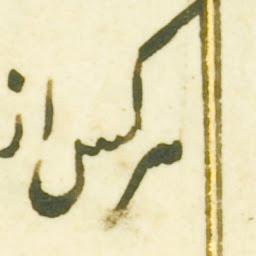 هر کس از